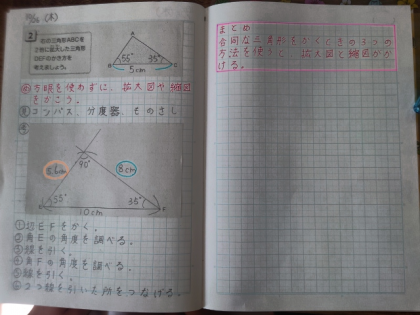 (木)
2 右の三角形ABCを
2倍に拡大した三角形
DEFのかき方を
考えましょう。
A
55° 35°
B C
5cm
方眼を使わずに、拡大図や縮図
をかこう。
コンパス、分度器、ものさし
90°
8cm
55° 35°
10cm
①辺EFをかく。
②角Eの角度を調べる。
③線を引く。
④角Fの角度を調べる。
⑤線を引く。
⑥2つ線を引いた所をつなげる。
まとめ
合同な三角形をかくときの3つの
方法を使うと、拡大図と縮図がか
ける。